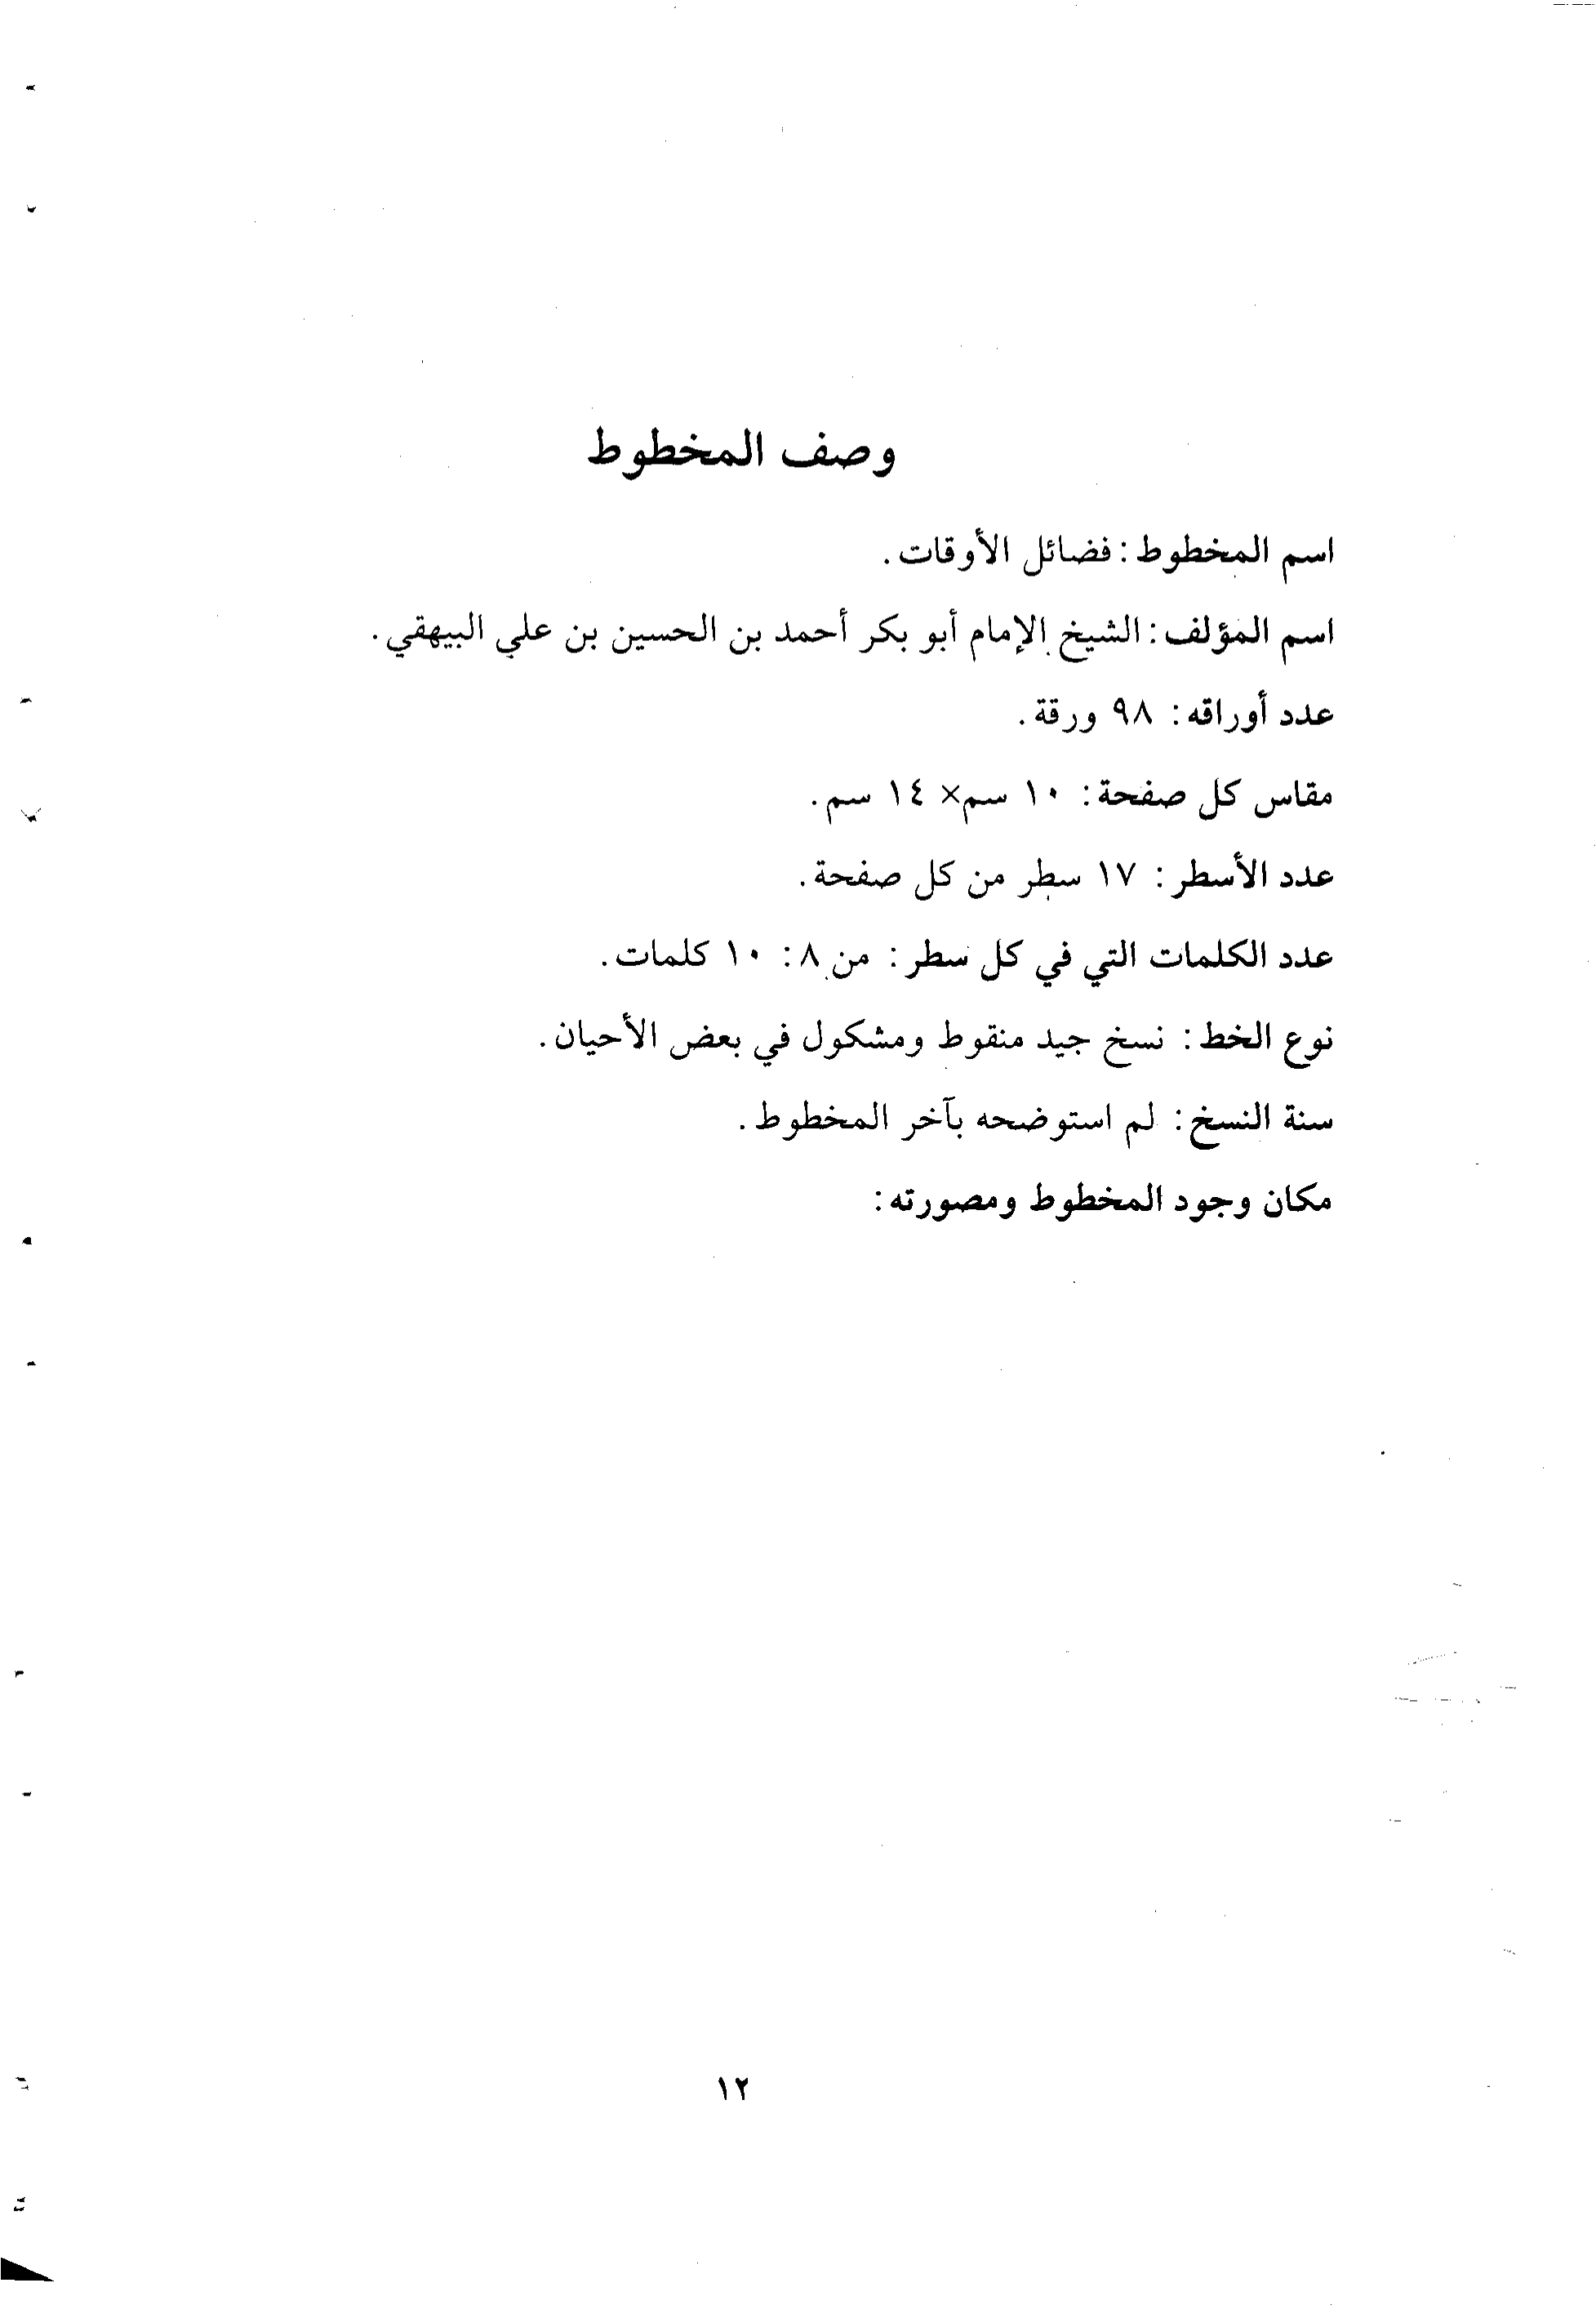 وصف المخطوط
اسم المخطوط: فضائل الأوقات.
اسم المؤلف: الشيخ الإمام أبو بكر أحمد بن الحسين بن علي البيهقي.
عدد أوراقه: ٩٨ ورقة.
مقاس كل صفحة: ١٠ سم× ١٤ سم.
عدد الأسطر: ١٧ سطر من كل صفحة.
عدد الكلمات التي في كل سطر: من ٨: ١٠ كلمات.
نوع الخط: نسخ جيد منقوط ومشكول في بعض الأحيان.
سنة النسخ: لم استوضحه بآخر المخطوط.
مكان وجود المخطوط ومصورته:
١٢